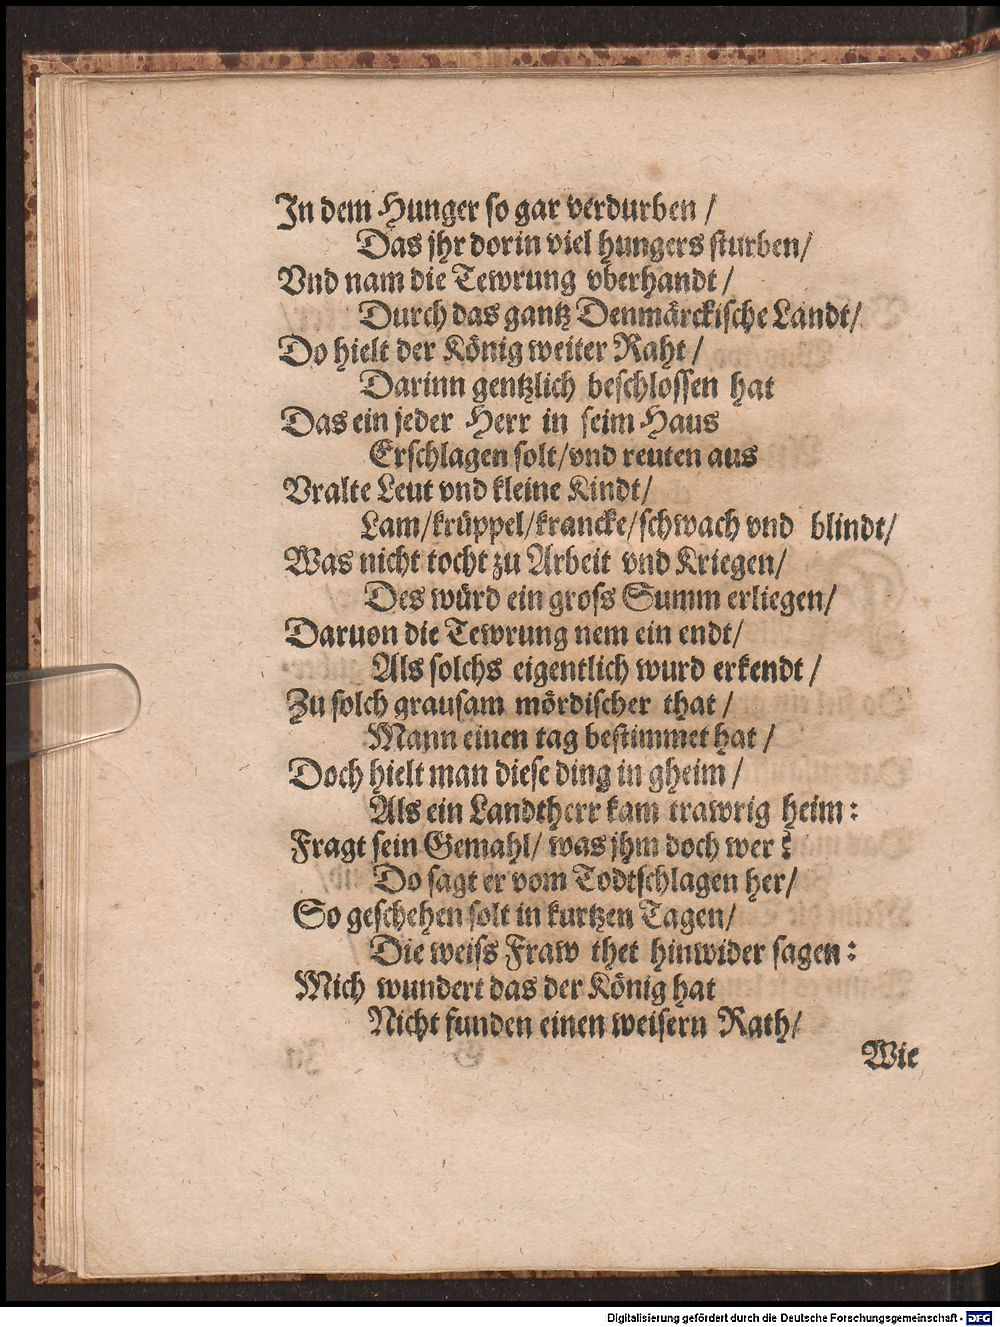 In dem Hunger so gar verdurben /
Das jhr dorin viel hungers sturben/
Vnd nam die Tewrung vberhandt /
Durch das gantz Denmärckische Landt/
Do hielt der König weiter Raht /
Darinn gentzlich beschlossen hat
Das ein jeder Herr in seim Haus
Erschlagen solt/vnd reuten aus
Vralte Leut vnd kleine Kindt/
Lam/krüppel/krancke/schwach vnd blindt/
Was nicht tocht zu Arbeit vnd Kriegen/
Des würd ein gross Summ erliegen/
Daruon die Tewrung nem ein endt/
Als solchs eigentlich wurd erkendt /
Zu solch grausam mördischer that /
Mann einen tag bestimmet hat /
Doch hielt man diese ding in gheim /
Als ein Landtherr kam trawrig heim:
Fragt sein Gemahl/ was jhm doch wer?
Do sagt er vom Todtschlagen her/
So geschehen solt in kurtzen Tagen/
Die weiss Fraw thet hinwider sagen:
Mich wundert das der König hat
Nicht funden einen weisern Rath/
Wie
Digitalisierung gefördert durch die Deutsche Forschungsgemeinschaft - DFG